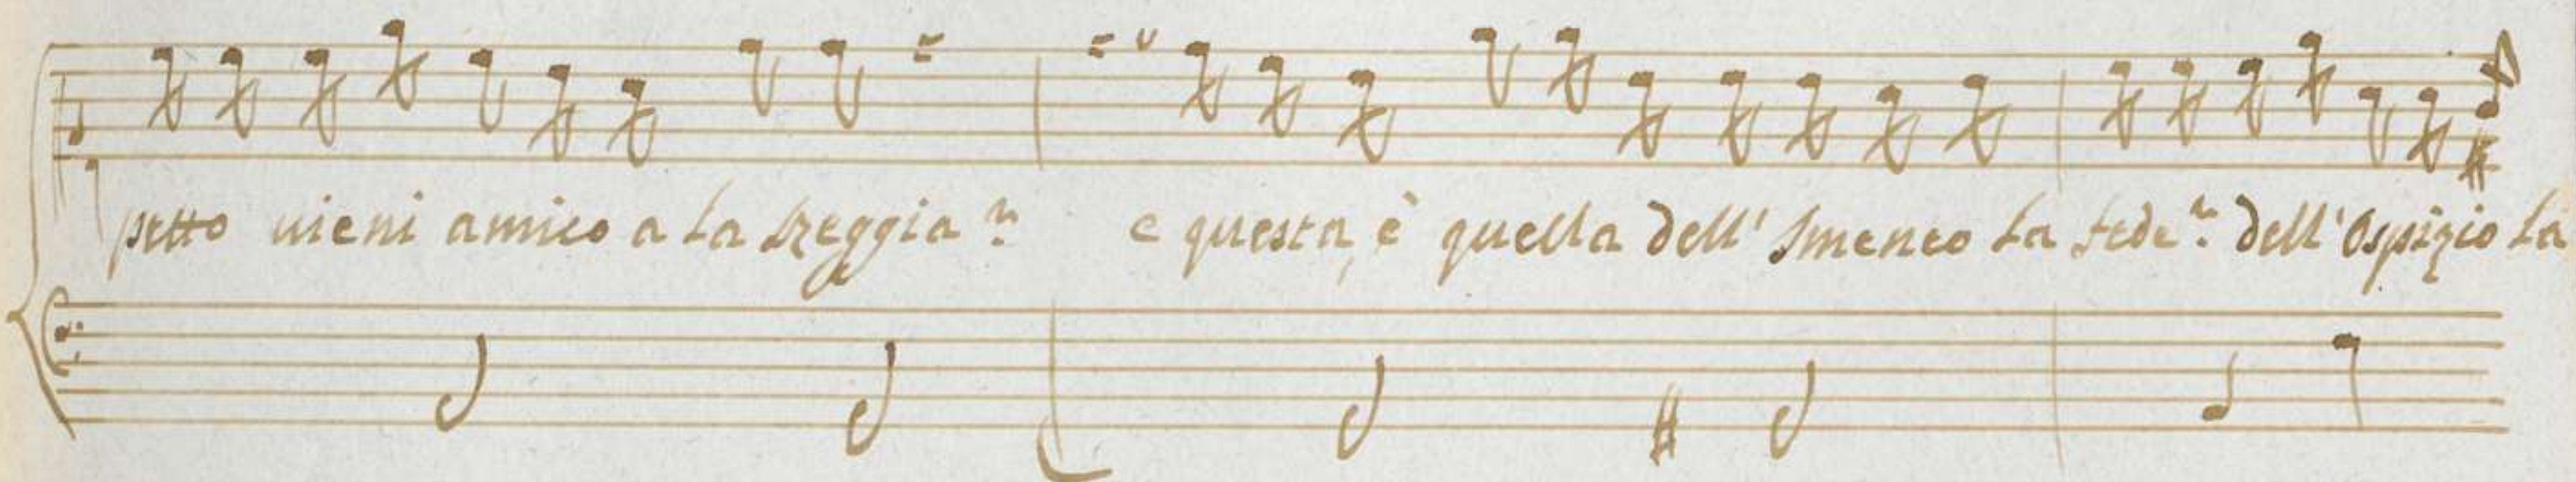 petto vieni amico a la Reggia? e questa, è quella dell' Imeneo la fede? dell' Ospizio la